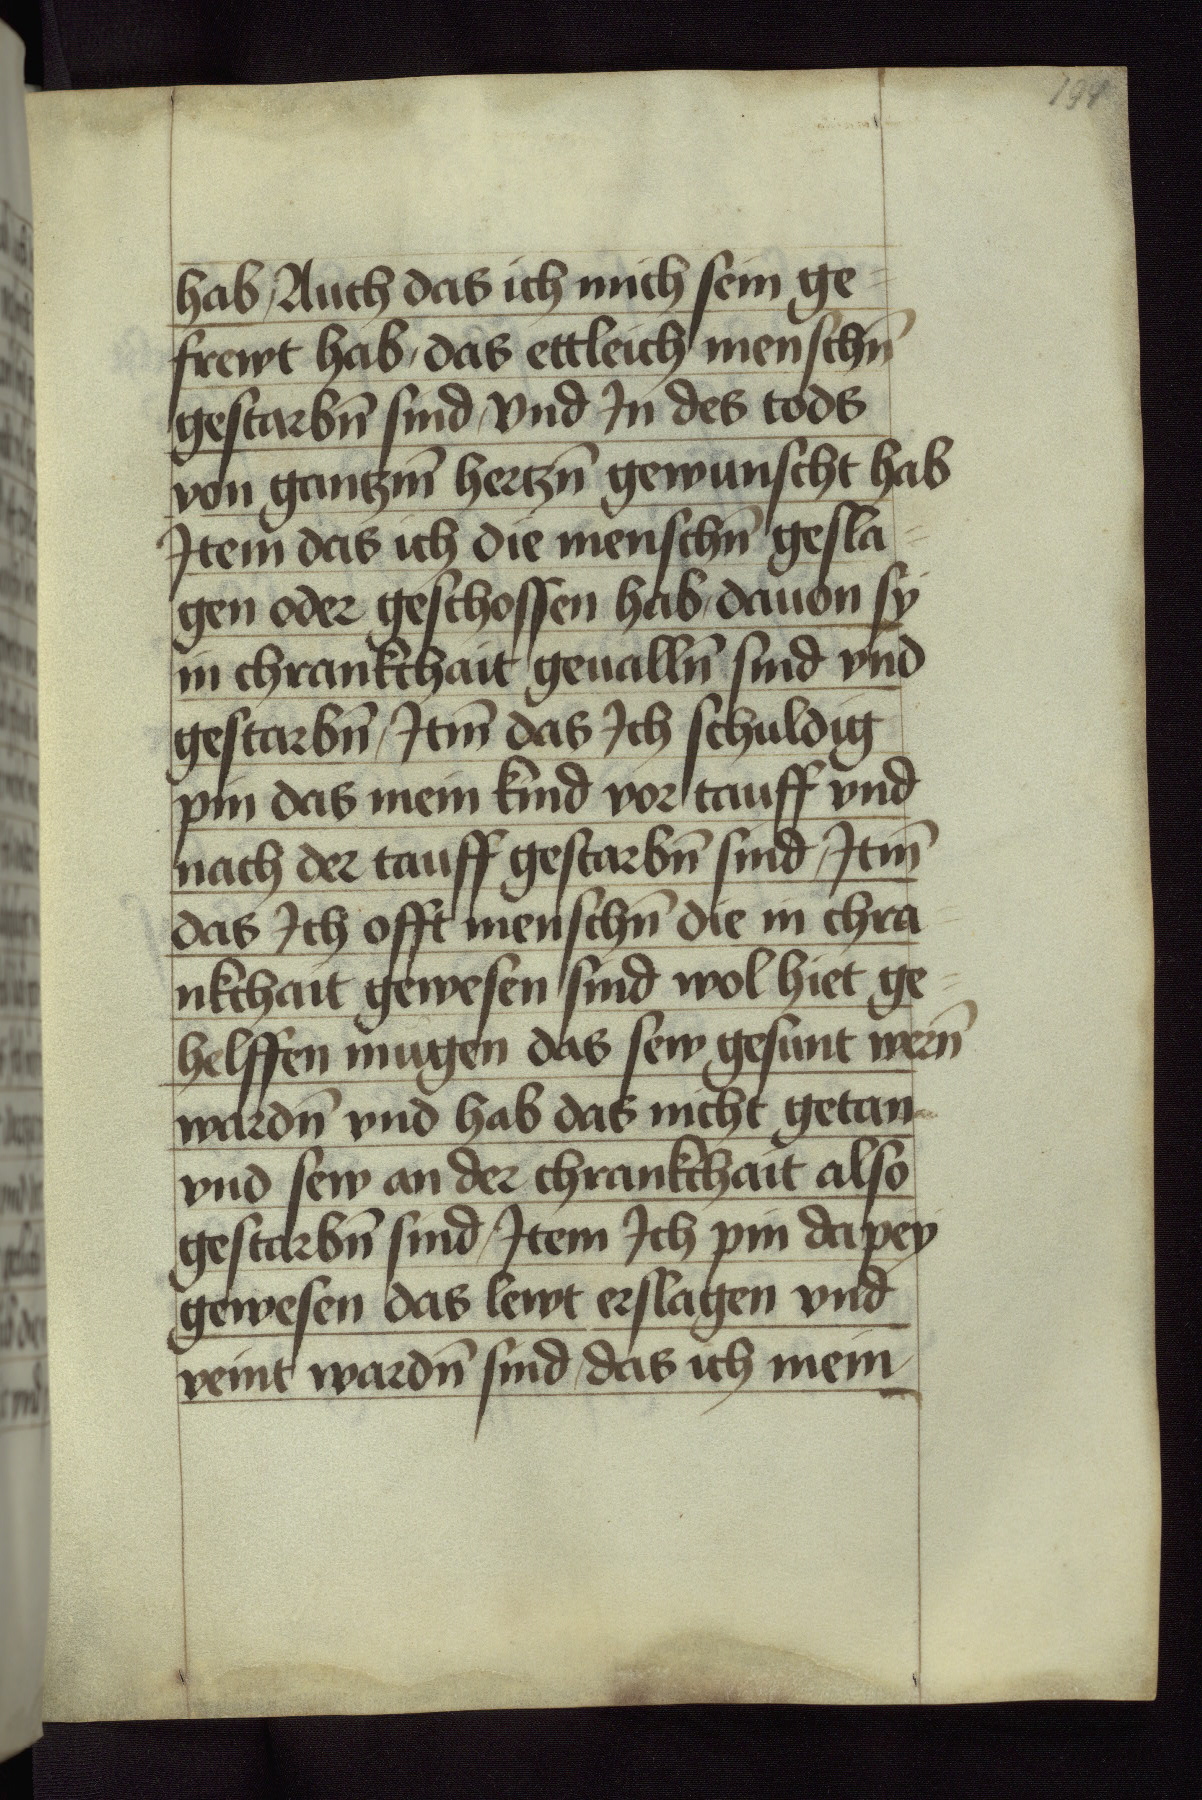 194
hab / Auch das ich mich sein ge=
frewt hab / das ettleich menschn̄
gestarbn̄ sind / Vnd In des tods
von gantzm̄ hertzn̄ gewunscht hab
Item das ich die menschn̄ gesla=
gen oder geschossen hab / dauon sy
in chrankchait geualln̄ sind vnd
gestarbn̄ / Itm̄ das Ich schuldig
pin das mein kind vor tauff vnd
nach der tauff gestarbn̄ sind / Itm̄
das Ich offt menschn̄ die in chra=
nkchait gewesen sind wol hiet ge=
helffen mugen das sew gesunt wern̄
wardn̄ vnd hab das nicht getan
vnd sew an der chrankchait also
gestarbn̄ sind / Item Ich pin da pey
gewesen das lewt erslagen vnd
veint wardn̄ sind / das ich mein